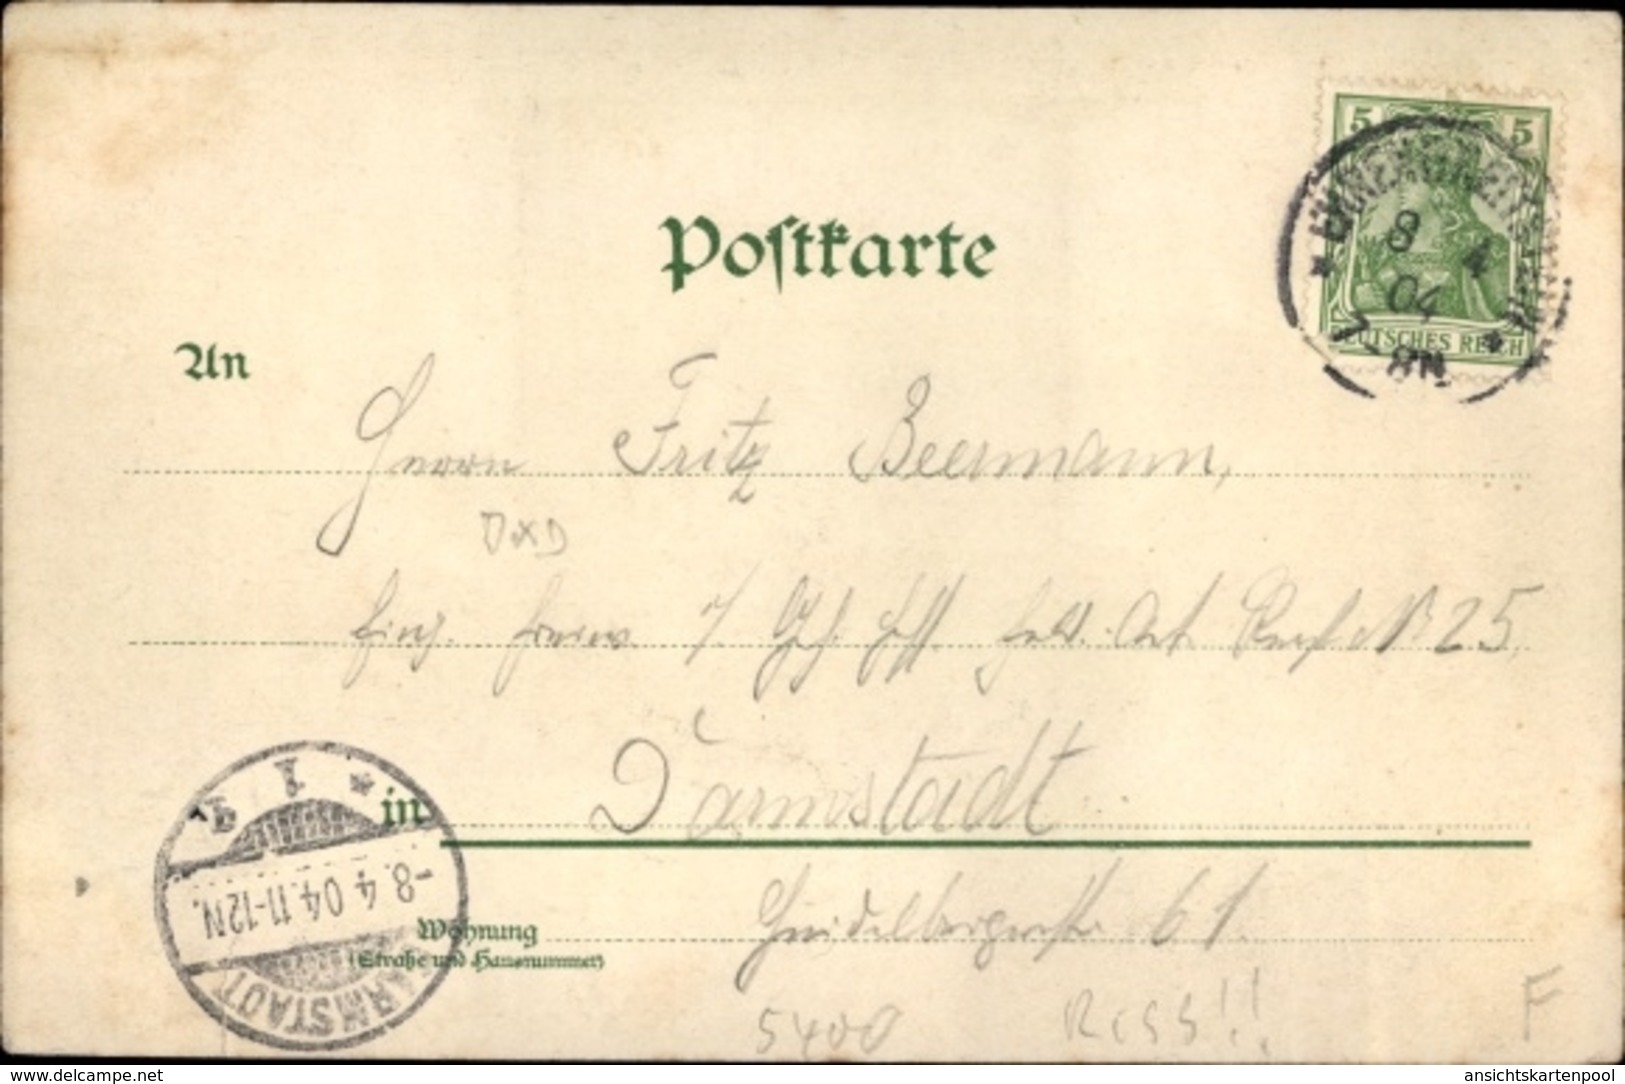 Postkarte
5 5
8 4
04
7-8N
DEUTSCHES REICH
An
Herrn Fritz Beermann,
DXD
Einj. Freiw. Feld. Art. N° 25
in Darmstadt
DARMSTADT
-8.4 04.11-12N.
1
Wohnung Heidelbergerstr. 61.
(Straße und Hausnummer)
5400 Riss!! F
www.delcampe.net ansichtskartenpool